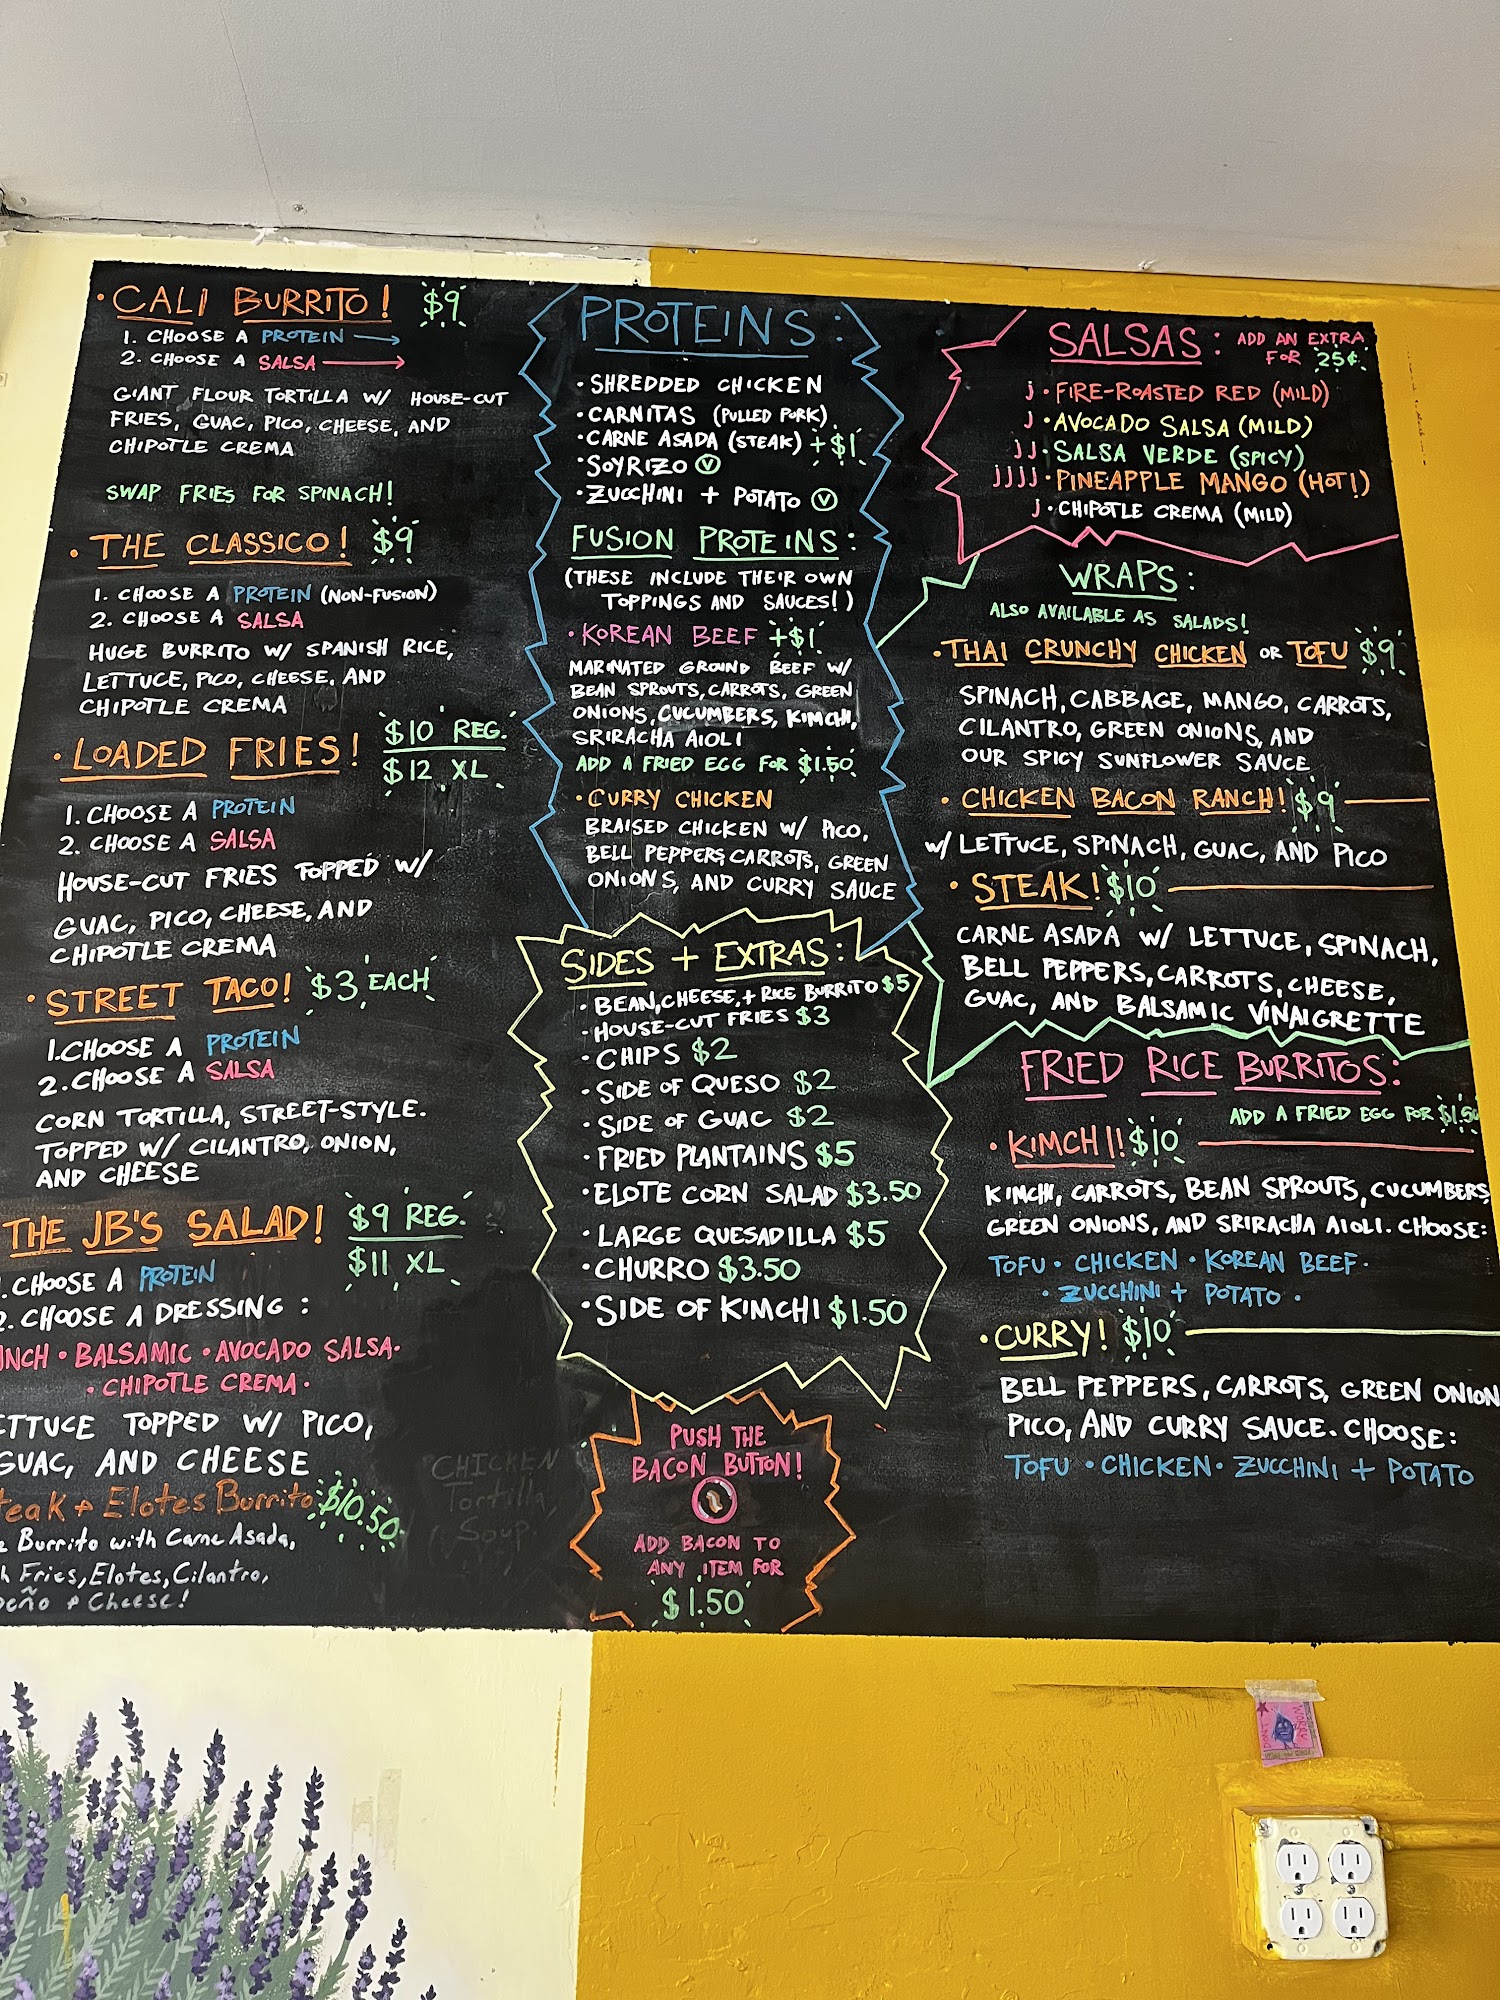 • CALI BURRITO! $9
1. CHOOSE A PROTEIN →
2. CHOOSE A SALSA →
GIANT FLOUR TORTILLA W/ HOUSE-CUT
FRIES, GUAC, PICO, CHEESE, AND
CHIPOTLE CREMA
SWAP FRIES FOR SPINACH!
• THE CLASSICO! $9
1. CHOOSE A PROTEIN (NON-FUSION)
2. CHOOSE A SALSA
HUGE BURRITO W/ SPANISH RICE,
LETTUCE, PICO, CHEESE, AND
CHIPOTLE CREMA
• LOADED FRIES! $10 REG.
$12 XL
1. CHOOSE A PROTEIN
2. CHOOSE A SALSA
HOUSE-CUT FRIES TOPPED W/
GUAC, PICO, CHEESE, AND
CHIPOTLE CREMA
• STREET TACO! $3 EACH
1. CHOOSE A PROTEIN
2. CHOOSE A SALSA
CORN TORTILLA, STREET-STYLE.
TOPPED W/ CILANTRO, ONION,
AND CHEESE
THE JB'S SALAD! $9 REG.
$11 XL
. CHOOSE A PROTEIN
2. CHOOSE A DRESSING:
NCH • BALSAMIC • AVOCADO SALSA •
• CHIPOTLE CREMA •
ETTUCE TOPPED W/ PICO,
GUAC, AND CHEESE
teak + Elotes Burrito $10.50
Burrito with Carne Asada,
h Fries, Elotes, Cilantro,
peño + Cheese!
CHICKEN
Tortilla
Soup!
PROTEINS:
• SHREDDED CHICKEN
• CARNITAS (PULLED PORK)
• CARNE ASADA (STEAK) +$1
• SOYRIZO Ⓥ
• ZUCCHINI + POTATO Ⓥ
FUSION PROTEINS:
(THESE INCLUDE THEIR OWN
TOPPINGS AND SAUCES!)
• KOREAN BEEF +$1
MARINATED GROUND BEEF W/
BEAN SPROUTS, CARROTS, GREEN
ONIONS, CUCUMBERS, KIMCHI,
SRIRACHA AIOLI
ADD A FRIED EGG FOR $1.50
• CURRY CHICKEN
BRAISED CHICKEN W/ PICO,
BELL PEPPERS, CARROTS, GREEN
ONIONS, AND CURRY SAUCE
SIDES + EXTRAS:
• BEAN, CHEESE, + RICE BURRITO $5
• HOUSE-CUT FRIES $3
• CHIPS $2
• SIDE OF QUESO $2
• SIDE OF GUAC $2
• FRIED PLANTAINS $5
• ELOTE CORN SALAD $3.50
• LARGE QUESADILLA $5
• CHURRO $3.50
• SIDE OF KIMCHI $1.50
PUSH THE
BACON BUTTON!
ADD BACON TO
ANY ITEM FOR
$1.50
SALSAS: ADD AN EXTRA
FOR 25¢
j • FIRE-ROASTED RED (MILD)
j • AVOCADO SALSA (MILD)
jj • SALSA VERDE (SPICY)
jjjj • PINEAPPLE MANGO (HOT!)
j • CHIPOTLE CREMA (MILD)
WRAPS:
ALSO AVAILABLE AS SALADS!
• THAI CRUNCHY CHICKEN OR TOFU $9
SPINACH, CABBAGE, MANGO, CARROTS,
CILANTRO, GREEN ONIONS, AND
OUR SPICY SUNFLOWER SAUCE
• CHICKEN BACON RANCH! $9
W/ LETTUCE, SPINACH, GUAC, AND PICO
• STEAK! $10
CARNE ASADA W/ LETTUCE, SPINACH,
BELL PEPPERS, CARROTS, CHEESE,
GUAC, AND BALSAMIC VINAIGRETTE
FRIED RICE BURRITOS:
ADD A FRIED EGG FOR $1.50
• KIMCHI! $10
KIMCHI, CARROTS, BEAN SPROUTS, CUCUMBERS,
GREEN ONIONS, AND SRIRACHA AIOLI. CHOOSE:
TOFU • CHICKEN • KOREAN BEEF •
• ZUCCHINI + POTATO •
• CURRY! $10
BELL PEPPERS, CARROTS, GREEN ONION
PICO, AND CURRY SAUCE. CHOOSE:
TOFU • CHICKEN • ZUCCHINI + POTATO